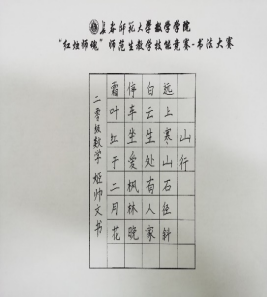 长春师范大学数学学院
“红烛师魂”师范生教学技能竞赛-书法大赛
山行
远上寒山石径斜
白云生处有人家
停车坐爱枫林晚
霜叶红于二月花
二零级数学 姬帅文书